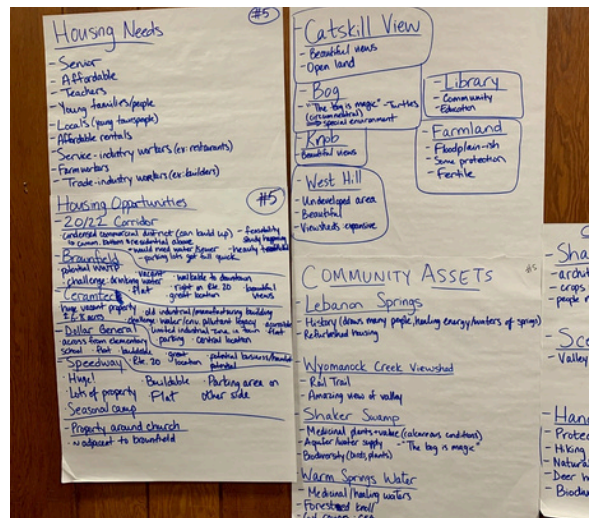 Housing Needs
#5
- Senior
- Affordable
- Teachers
- Young families/people
- Locals (young townspeople)
- Affordable rentals
- Service-industry workers (ex: restaurants)
- Farmworkers
- Trade-industry workers (ex: builders)
Housing Opportunities
#5
- 20/22 Corridor
condensed commercial district (can build up)
- feasibility
study happening
to comm. bottom & residential above
would need water/sewer
- parking lots get full quick
- Brownfield
potential WWTP
vacant
walkable to downtown
- challenge: drinking water
flat
right on Rte. 20
beautiful
views
great location
- Ceramtec
huge vacant property
old industrial/manufacturing building
challenge: water/env. pollutant legacy
accessible
flat
limited industrial zone in town
- Dollar General
across from elementary
school
parking
central location
flat
buildable
- Speedway
Rte. 20
great
location
potential
Huge!
Buildable
Parking area on
other side
Lots of property
Flat
Seasonal camp
- Property around church
adjacent to brownfield
- Catskill View
- Beautiful views
- Open land
- Bog
- "The bog is magic"
- Turtles
(circumneutral)
special environment
- Knob
- Beautiful views
- West Hill
- Undeveloped area
- Beautiful
- Viewsheds expansive
- Library
- Community
- Education
- Farmland
- Floodplain-ish
- Some protection
- Fertile
COMMUNITY ASSETS
#5
- Lebanon Springs
- History (draws many people, healing energy/waters of springs)
- Refurbished housing
- Wyomanock Creek Viewshed
- Rail Trail
- Amazing view of valley
- Shaker Swamp
- Medicinal plants
value (calcareous conditions)
- Aquifer/water supply
- "The bog is magic"
- Biodiversity (birds, plants)
- Warm Springs Water
- Medicinal/healing waters
- Forested knoll
- Sha
- archit
- crops
- people
- Sce
- Valley
- Han
- Protec
- Hiking
- Natura
- Deer h
- Biodiv